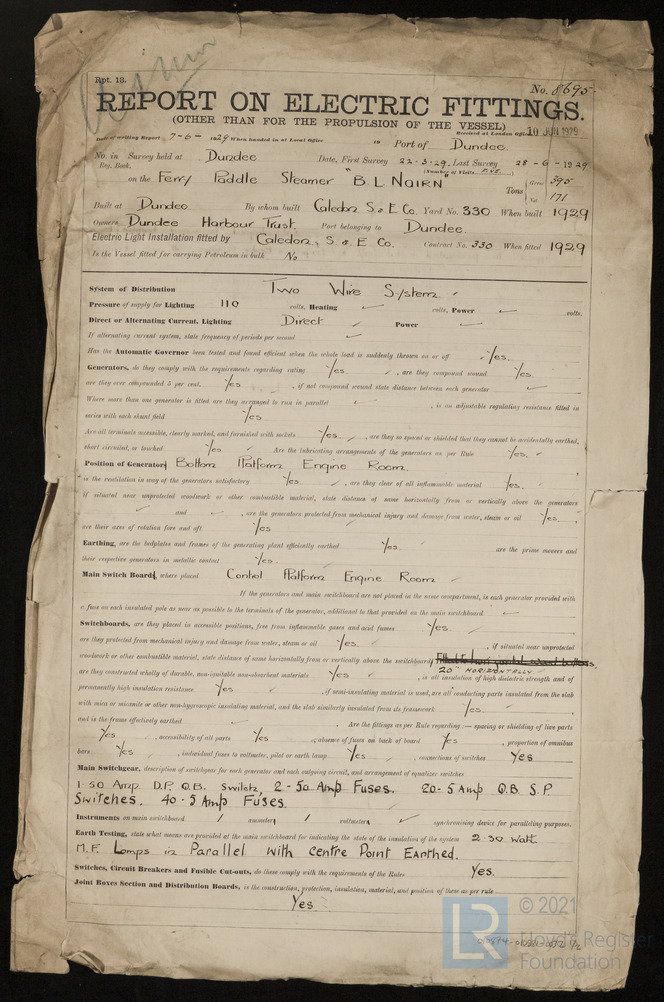 Rpt. 13.
No. 8695
REPORT ON ELECTRIC FITTINGS.
(OTHER THAN FOR THE PROPULSION OF THE VESSEL)
Received at London Office 10 JUN 1929
Date of writing Report 7-6-1929 When handed in at Local Office 19 Port of Dundee.
No. in Survey held at Dundee Date, First Survey 22-5-29, Last Survey 28-6-1929
Reg. Book. (Number of Visits Five)
on the Ferry Paddle Steamer "B.L. NAIRN" Tons { Gross 395
Net 171
Built at Dundee By whom built Caledon S. & E Co. Yard No. 330 When built 1929
Owners Dundee Harbour Trust. Port belonging to Dundee.
Electric Light Installation fitted by Caledon, S. & E Co. Contract No. 330 When fitted 1929
Is the Vessel fitted for carrying Petroleum in bulk No
System of Distribution Two Wire System.
Pressure of supply for Lighting 110 volts, Heating volts, Power volts.
Direct or Alternating Current, Lighting Direct Power
If alternating current system, state frequency of periods per second
Has the Automatic Governor been tested and found efficient when the whole load is suddenly thrown on or off Yes.
Generators, do they comply with the requirements regarding rating Yes. , are they compound wound Yes.
are they over compounded 5 per cent. Yes , if not compound wound state distance between each generator
Where more than one generator is fitted are they arranged to run in parallel , is an adjustable regulating resistance fitted in
series with each shunt field Yes
Are all terminals accessible, clearly marked, and furnished with sockets Yes. , are they so spaced or shielded that they cannot be accidentally earthed,
short circuited, or touched Yes Are the lubricating arrangements of the generators as per Rule Yes.
Position of Generators Bottom Platform Engine Room.
is the ventilation in way of the generators satisfactory Yes. , are they clear of all inflammable material Yes.
if situated near unprotected woodwork or other combustible material, state distance of same horizontally from or vertically above the generators
and , are the generators protected from mechanical injury and damage from water, steam or oil Yes.
are their axes of rotation fore and aft Yes
Earthing, are the bedplates and frames of the generating plant efficiently earthed Yes. are the prime movers and
their respective generators in metallic contact Yes.
Main Switch Boards, where placed Control Platform Engine Room
If the generators and main switchboard are not placed in the same compartment, is each generator provided with
a fuse on each insulated pole as near as possible to the terminals of the generator, additional to that provided on the main switchboard
Switchboards, are they placed in accessible positions, free from inflammable gases and acid fumes Yes
are they protected from mechanical injury and damage from water, steam or oil Yes. , if situated near unprotected
woodwork or other combustible material, state distance of same horizontally from or vertically above the switchboards
20" HORIZONTALLY
are they constructed wholly of durable, non-ignitable non-absorbent materials Yes , is all insulation of high dielectric strength and of
permanently high insulation resistance Yes , if semi-insulating material is used, are all conducting parts insulated from the slab
with mica or micanite or other non-hygroscopic insulating material, and the slab similarly insulated from its framework Yes.
and is the frame effectively earthed . Are the fittings as per Rule regarding :— spacing or shielding of live parts
Yes , accessibility of all parts Yes , absence of fuses on back of board Yes , proportion of omnibus
bars Yes , individual fuses to voltmeter, pilot or earth lamp Yes , connections of switches Yes
Main Switchgear, description of switchgear for each generator and each outgoing circuit, and arrangement of equalizer switches
1-50 Amp D.P. Q.B. Switch, 2-50 Amp Fuses. 20-5 Amp Q.B. S.P.
Switches. 40-5 Amp Fuses
Instruments on main switchboard 1 ammeters 1 voltmeters synchronising device for paralleling purposes.
Earth Testing, state what means are provided at the main switchboard for indicating the state of the insulation of the system 2 30 Watt.
M.F. Lamps in Parallel with Centre Point Earthed.
Switches, Circuit Breakers and Fusible Cut-outs, do these comply with the requirements of the Rules Yes.
Joint Boxes Section and Distribution Boards, is the construction, protection, insulation, material, and position of these as per rule
Yes.
© 2021
Lloyd's Register
Foundation
LR